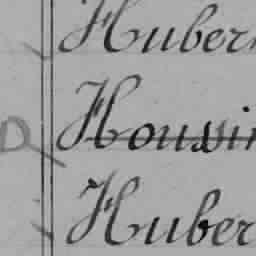 Huber
D Houssin
Huber